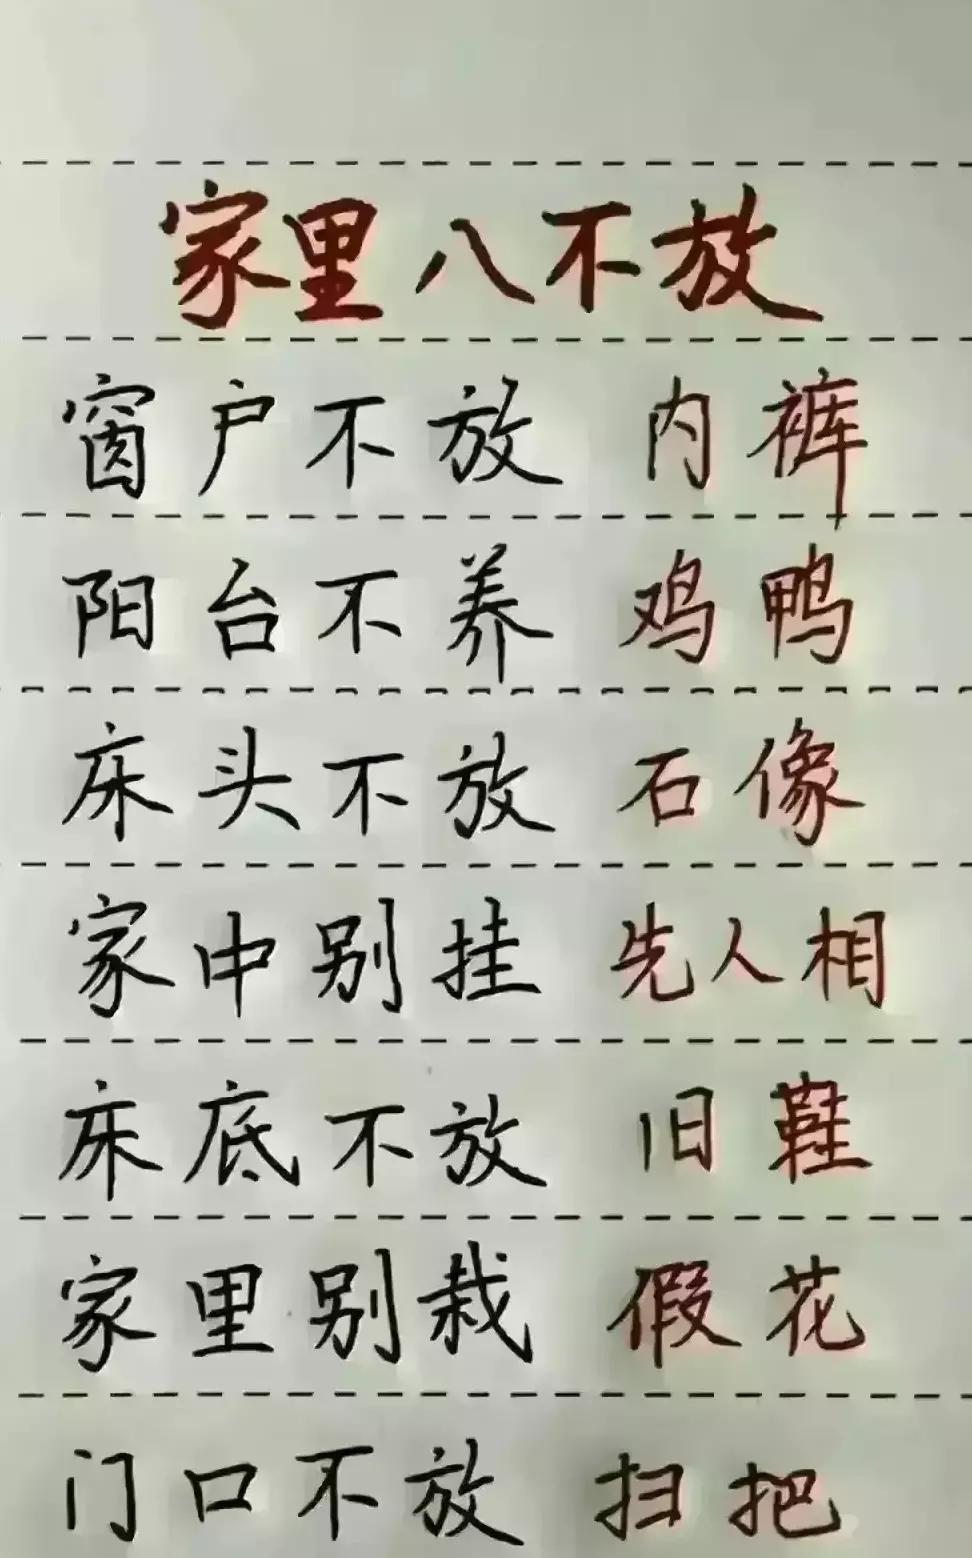 家里八不放
窗户不放 内裤
阳台不养 鸡鸭
床头不放 石像
家中别挂 先人相
床底不放 旧鞋
家里别栽 假花
门口不放 扫把